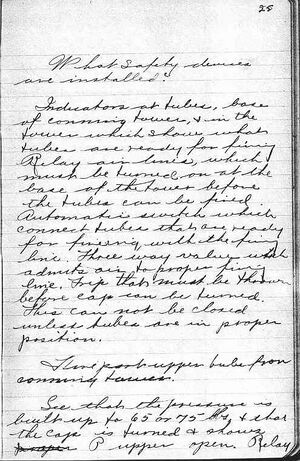 28
What safety devices
are installed?
Indicators at tubes, base
of conning tower, & in the
tower which show what
tubes are ready for firing
Relay air lines, which
must be turned on at the
base of the tower before
the tubes can be fired.
Automatic switch which
connect tubes that are ready
for fireing, with the firing
line. Three way valve which
admits air to proper firing
line. Trip that must be thrown
before cap can be turned.
This can not be closed
unless tubes are in proper
position.
Fire port upper tube from
conning tower.
See that the pressure is
built up to 65 or 75 #s, & that
the cap is turned & shows
P upper open. Relay